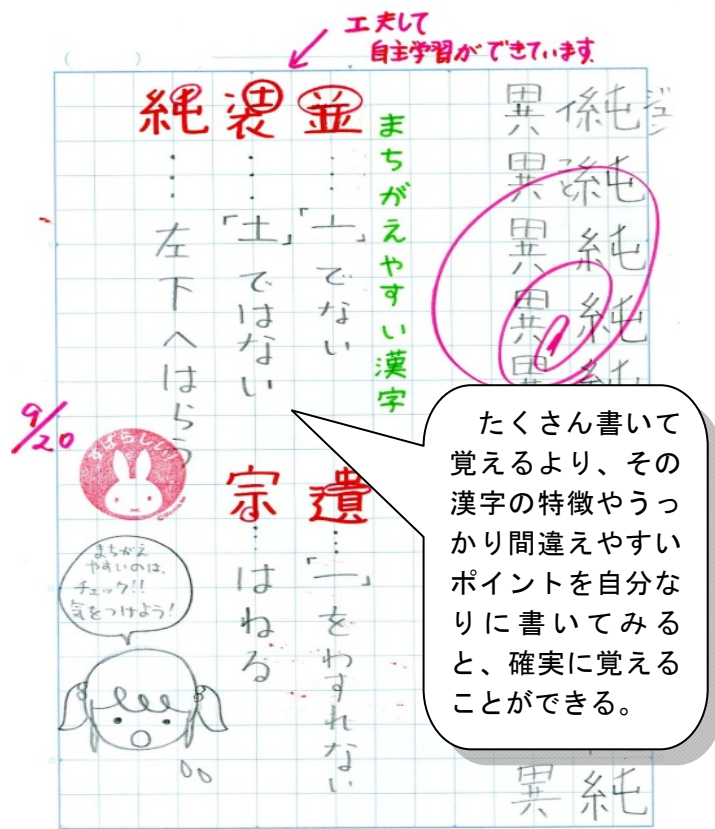 工夫して
自主学習ができています
純純純純純 純
ジュン
異異異異異 異
イ
こと
まちがえやすい漢字
並…「亠」でない
装…「土」ではない
純…左下へはらう
遺…「一」をわすれない
宗…はねる
9/20
すばらしい!
まちがえ
やすいのは、
チェック!!
気をつけよう!
たくさん書いて
覚えるより、その
漢字の特徴やうっ
かり間違えやすい
ポイントを自分な
りに書いてみる
と、確実に覚える
ことができる。